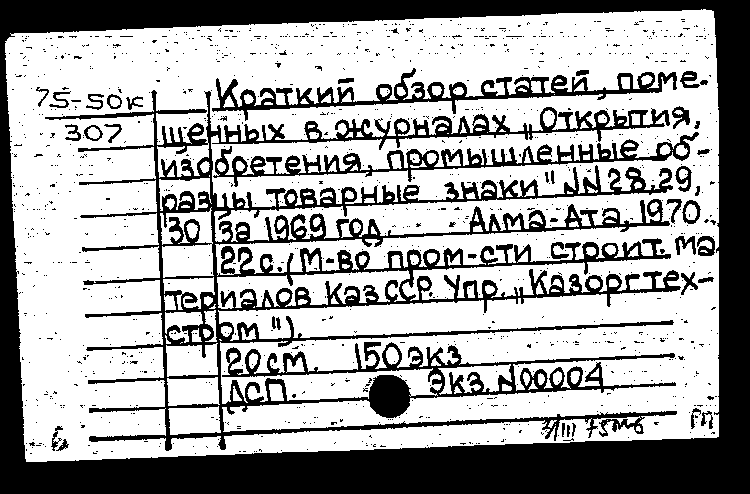 75-50к Краткий обзор статей, поме-
307 щенных в журналах „Открытия,
изобретения, промышленные об-
разцы, товарные знаки" NN 28, 29,
30 за 1969 год. Алма-Ата, 1970.
22 с. (М-во пром-сти строит. ма
териалов КазССР. Упр. „Казоргтех-
стром").
20 см. 150 экз.
ДСП. Экз. N00004
Б 3/III 75 РП